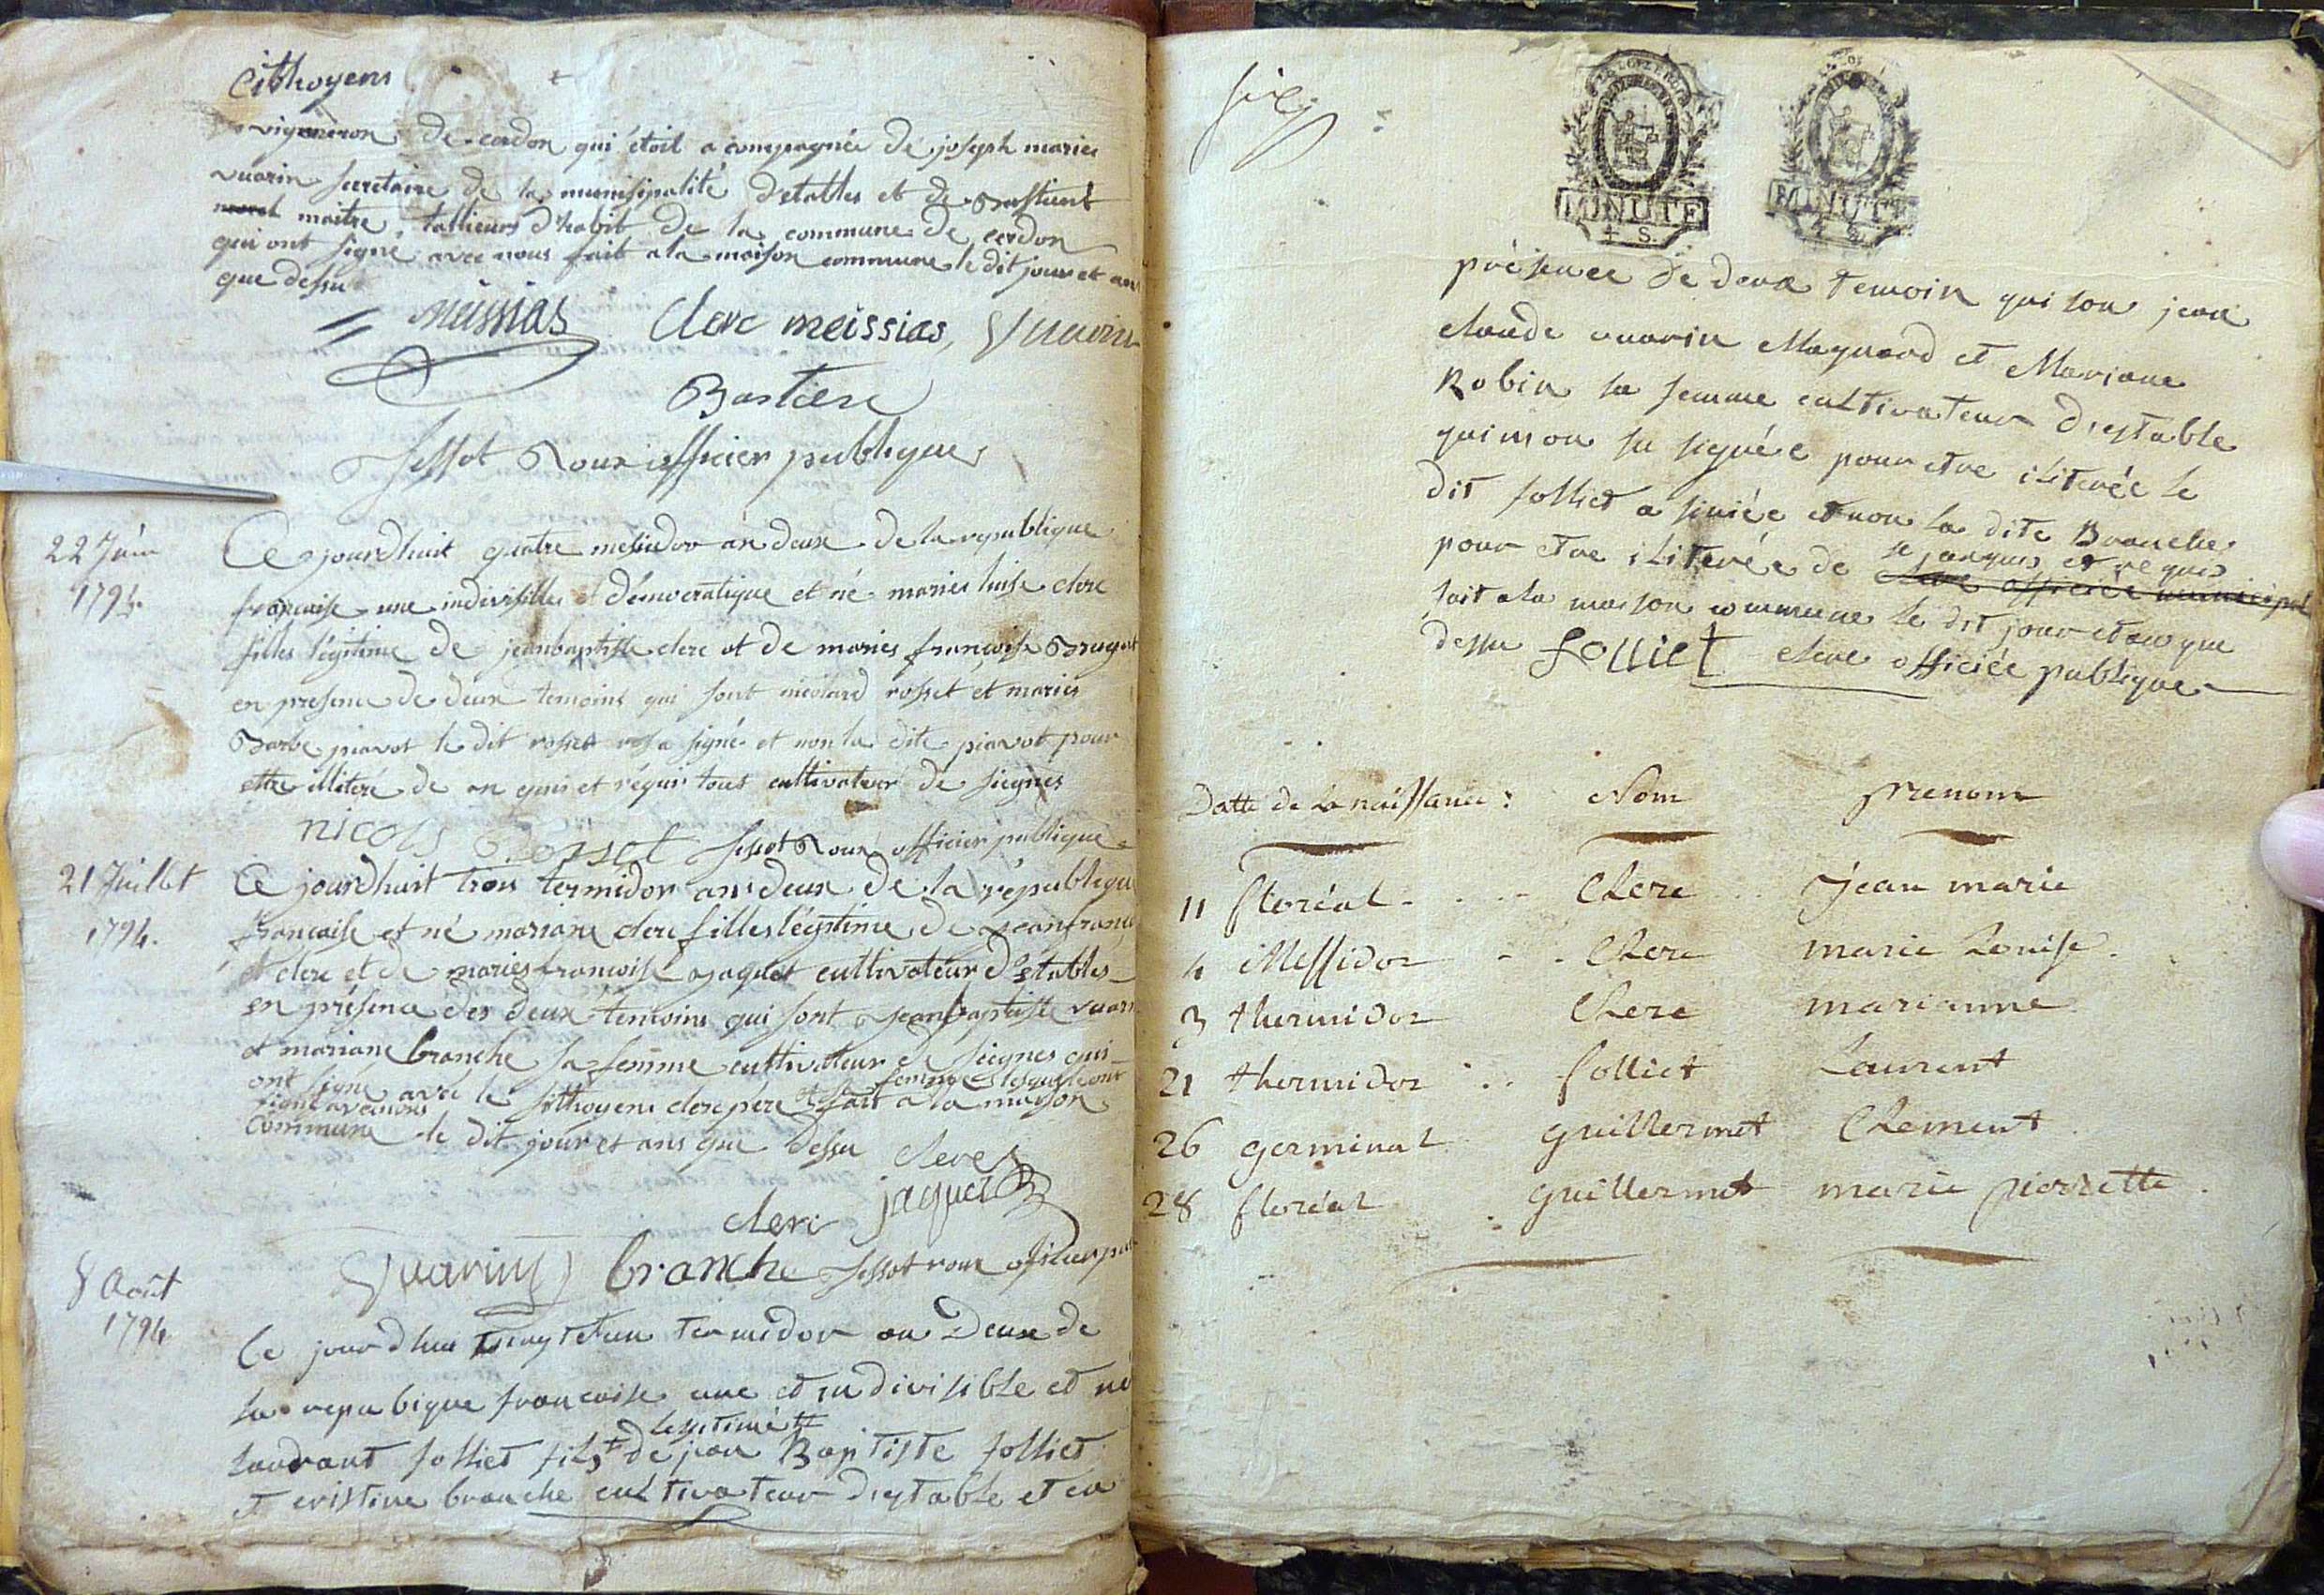 Cithoyens
vigneron de cerdon qui étoit acompagnée de joseph marie
vuarin secretaire de la munisipalité d'etables et de Bastient
morel maitre tallieurs d'habit de la commune de cerdon
qui ont signé avec nous fait a la maison commune le dit jour et an
que dessu
Meissias Clerc meissias, Vuarin
Bastien
Jessot Roux officier publique
22 Juin
1794.
Ce jourdhuit quatre mesidor an deux de la republique
francaise une indivisilles et démocratique et né marie luise clerc
filles légitime de jeanbaptiste clerc et de maries francoise Brugat
en presence de deux temoins qui sont nicolard rosset et maries
Barbe piavot le dit rosset a signé et non la dite piavot pour
ettre illiteré de an quis et réquis tous cultivateur de siegnes
nicolS Rosset Jessot Roux officier publique
21 Juillet
1794.
Ce jourdhuit trois termidor an deux de la républiqu
francaise et né mariane clerc filles légitime de jeanfranc
clerc et de maries francoise jaquet cultivateur d'etables
en présence des deux témoins qui sont jeanbaptiste vuarin
et mariane branche sa femme cultivateur de seignes qui
ont signé avec le sithoyens clerc père et sa femme lesquels ont
signé avec nous fait a la maison
Commune le dit jour et ans que dessu
clerc
jaquet
clerc
Vuarin branche Jessot roux oficier pu
8 Août
1794
Ce jour dhui vingt et un termidor an Deux de
la repubique francaise une et indivisible et né
laudrant folliet fils legitime de jean Baptiste folliet
et cristine branche cultivateur d'estable et en
MINUTE
4 S.
MINUTE
présence de deux temoin qui son jean
claude vuarin Maynard et Mariane
Robin sa femme cultivateur d'estable
qui non su signée pour etre iliterée le
dit folliet a siniée et non la dite Branche
pour etre iliterée de se anquis et requis
clerc officiée municipal
fait a la maison commune le dit jour et an que
dessu folliet clerc officiée publique
Datte de La naissance : Nom prenom
11 floréal Clerc Jean marie
4 Messidor Clerc marie Louise
3 thermidor Clerc marianne
21 thermidor folliet Laurent
26 germinal guillermet Clement
28 floréal guillermet marie pierrette